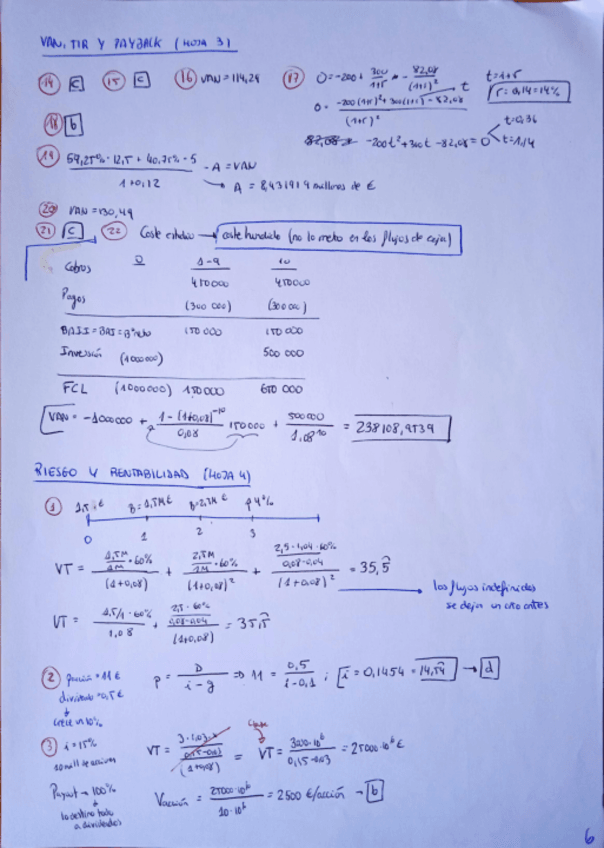 VAN, TIR Y PAYBACK (HOJA 3)
14 C 15 C 16 VAN = 114,29 17 0 = -200 + 300/(1+r) - 82,08/(1+r)² t = 1+r
0 = (-200(1+r)² + 300(1+r) - 82,08)/(1+r)² r = 0,14 = 14%
18 b -200t² + 300t - 82,08 = 0 t = 0,36 t = 1,14
19 (59,25% · 12,5 + 40,75% · 5)/(1+0,12) - A = VAN
→ A = 8,431919 millones de €
20 VAN = 130,49
21 C 22 Coste estudio → coste hundido (no lo meto en los flujos de caja)
0 1-9 10
Cobros 450000 450000
Pagos (300 000) (300000)
BAII = BAI = Bº neto 150 000 150 000
Inversión (1000000) 500 000
FCL (1000000) 150000 650 000
VAN = -1000000 + (1 - (1+0,08)^-10)/0,08 · 150000 + 500000/1,08^10 = 238108,9539
RIESGO Y RENTABILIDAD (HOJA 4)
1 B = 1,5M€ g 4%
0 1 2 3
VT = (1,5M/1M · 60%)/(1+0,08) + (2,5M/1M · 60%)/(1+0,08)² + ((2,5 · 1,04 · 60%)/(0,08-0,04))/(1+0,08)² = 35,5
los flujos indefinidos
se dejan un año antes
VT = (1,5/1 · 60%)/1,08 + ((2,5 · 60%)/(0,08-0,04))/(1+0,08) = 35,5
2 precio = 11 € P = D/(i-g) ⇒ 11 = 0,5/(i-0,1) ; i = 0,1454 = 14,54 → d
dividendo = 0,5 €
crece un 10%
3 i = 15% VT = = VT = 3000·10⁶/(0,15-0,03) = 25000·10⁶ €
10 mill de acciones
Payout → 100% Vacción = 25000·10⁶/10·10⁶ = 2500 €/acción → b
lo destino todo
a dividendos
6